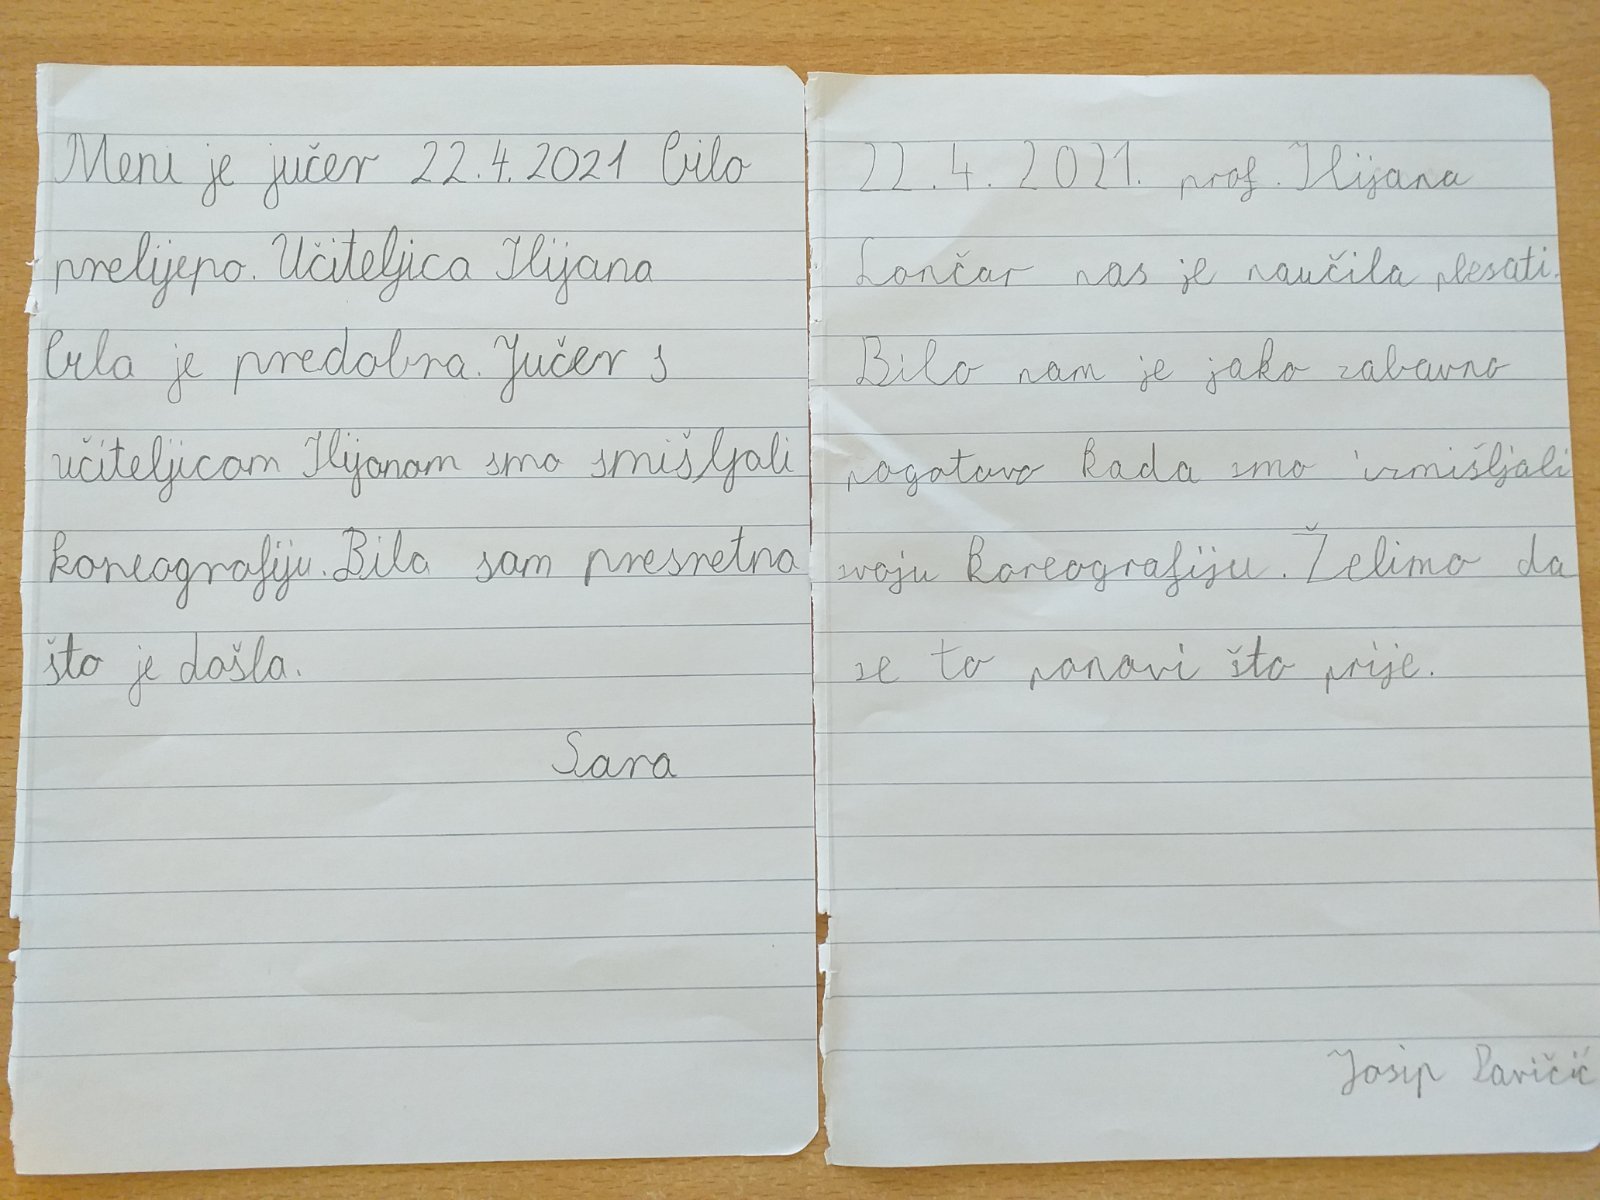 Meni je jučer 22.4.2021 bilo
prelijepo. Učiteljica Ilijana
bila je predobra. Jučer s
učiteljicom Ilijanom smo smišljali
koreografiju. Bila sam presretna
što je došla.
Sara
22.4.2021. prof. Ilijana
Lončar nas je naučila plesati.
Bilo nam je jako zabavno
pogotovo kada smo izmišljali
svoju koreografiju. Želimo da
se to ponovi što prije.
Josip Pavičić